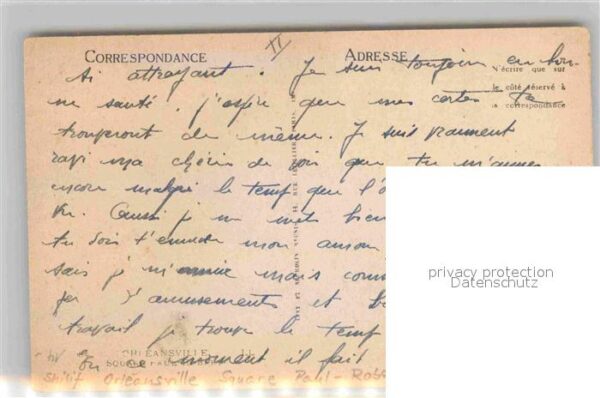 II
CORRESPONDANCE
ADRESSE
N'écrire que sur
le côté réservé à
la correspondance
si attrayant. Je suis toujours en bon-
ne santé, j'espère que mes cartes te
trouveront de même. Je suis vraiment
ravi ma chérie de voir que tu m'aimes
encore malgré le temps que l'o
vu. Aussi je me mets bien
tu dois t'ennuie mon amour
sais je m'ennuie mais comm
pas d'amusements et b
travail je trouve le temps
En ce moment il fait
ORLÉANSVILLE
SQUARE PAUL
Orléansville Square Paul-Rob
privacy protection
Datenschutz